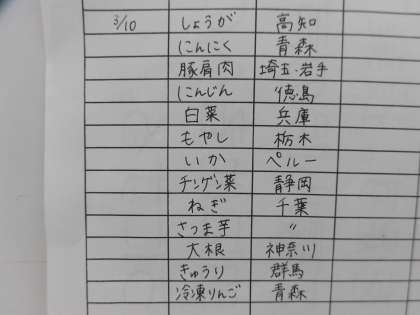 3/10 しょうが 高知
にんにく 青森
豚肩肉 埼玉・岩手
にんじん 徳島
白菜 兵庫
もやし 栃木
いか ペルー
チンゲン菜 静岡
ねぎ 千葉
さつま芋 〃
大根 神奈川
きゅうり 群馬
冷凍りんご 青森